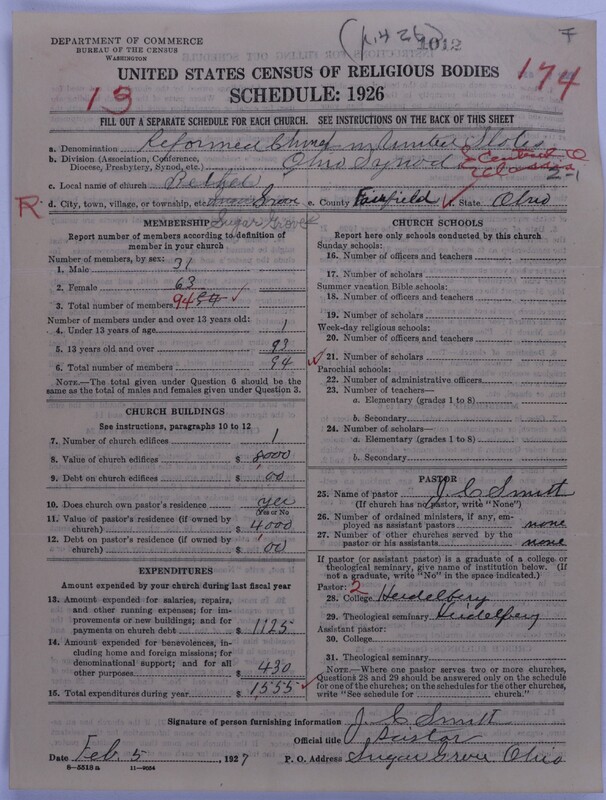 DEPARTMENT OF COMMERCE
BUREAU OF THE CENSUS
WASHINGTON
1012
UNITED STATES CENSUS OF RELIGIOUS BODIES
SCHEDULE: 1926
13
174
FILL OUT A SEPARATE SCHEDULE FOR EACH CHURCH. SEE INSTRUCTIONS ON THE BACK OF THIS SHEET
a. Denomination Reformed Church in United States
b. Division (Association, Conference, Diocese, Presbytery, Synod, etc.) Ohio Synod
c. Local name of church Bethel
R d. City, town, village, or township, etc. Sugar Grove e. County Fairfield f. State Ohio
Sugar Grove
MEMBERSHIP
Report number of members according to definition of member in your church
Number of members, by sex:
1. Male 31
2. Female 63
3. Total number of members 94
Number of members under and over 13 years old:
4. Under 13 years of age 1
5. 13 years old and over 93
6. Total number of members 94
NOTE.—The total given under Question 6 should be the same as the total of males and females given under Question 3.
CHURCH BUILDINGS
See instructions, paragraphs 10 to 12
7. Number of church edifices 1
8. Value of church edifices $ 8000
9. Debt on church edifices $ 00
10. Does church own pastor's residence yes
(Yes or No
11. Value of pastor's residence (if owned by church) $ 4000
12. Debt on pastor's residence (if owned by church) $ 00
EXPENDITURES
Amount expended by your church during last fiscal year
13. Amount expended for salaries, repairs, and other running expenses; for improvements or new buildings; and for payments on church debt $ 1125
14. Amount expended for benevolences, including home and foreign missions; for denominational support; and for all other purposes $ 430
15. Total expenditures during year $ 1555
CHURCH SCHOOLS
Report here only schools conducted by this church
Sunday schools:
16. Number of officers and teachers
17. Number of scholars
Summer vacation Bible schools:
18. Number of officers and teachers
19. Number of scholars
Week-day religious schools:
20. Number of officers and teachers
21. Number of scholars
Parochial schools:
22. Number of administrative officers
23. Number of teachers—
a. Elementary (grades 1 to 8)
b. Secondary
24. Number of scholars—
a. Elementary (grades 1 to 8)
b. Secondary
PASTOR
25. Name of pastor J. C. Smith
(If church has no pastor, write "None")
26. Number of ordained ministers, if any, employed as assistant pastors none
27. Number of other churches served by the pastor or his assistants none
If pastor (or assistant pastor) is a graduate of a college or theological seminary, give name of institution below. (If not a graduate, write "No" in the space indicated.)
Pastor: 2
28. College Heidelberg
29. Theological seminary Heidelberg
Assistant pastor:
30. College
31. Theological seminary
NOTE.—Where one pastor serves two or more churches, Questions 28 and 29 should be answered only on the schedule for one of the churches; on the schedules for the other churches, write "See schedule for church."
Signature of person furnishing information J. C. Smith
Official title Pastor
Date Feb. 5, 1927 P. O. Address Sugar Grove Ohio
8-5518 a 11-9054